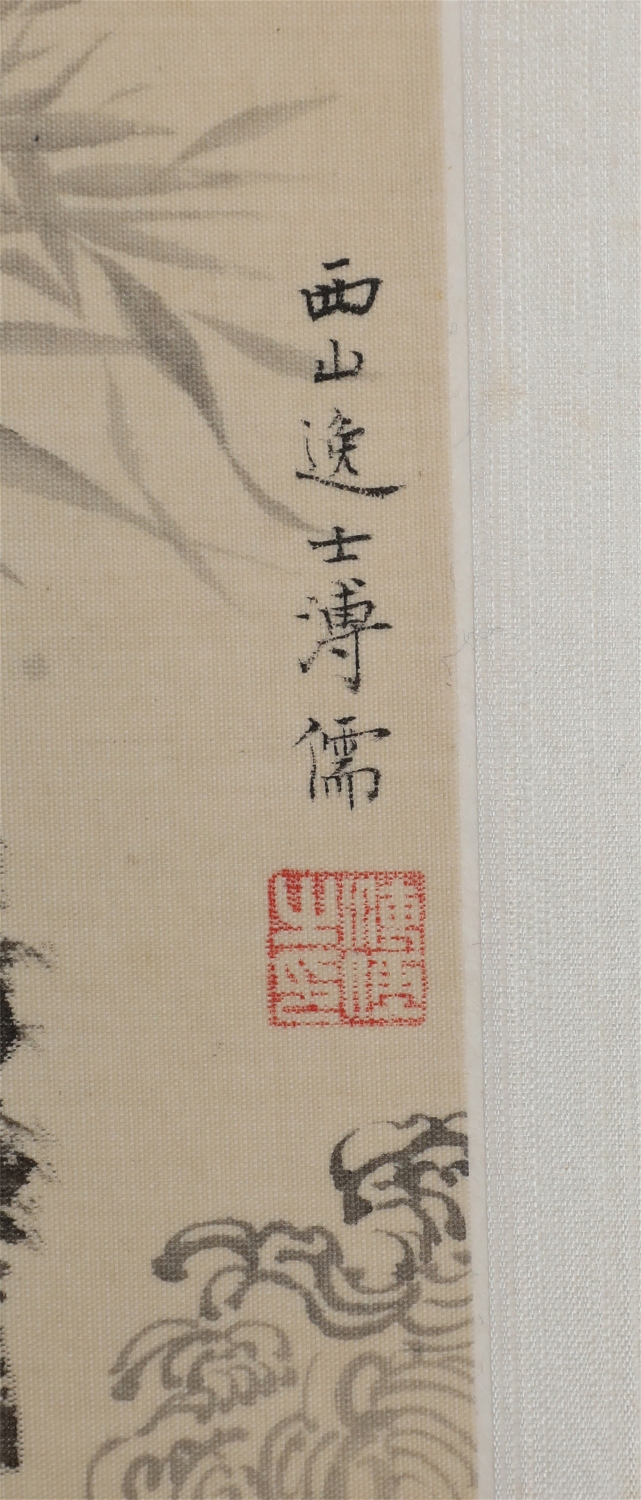 西山逸士溥儒
之印